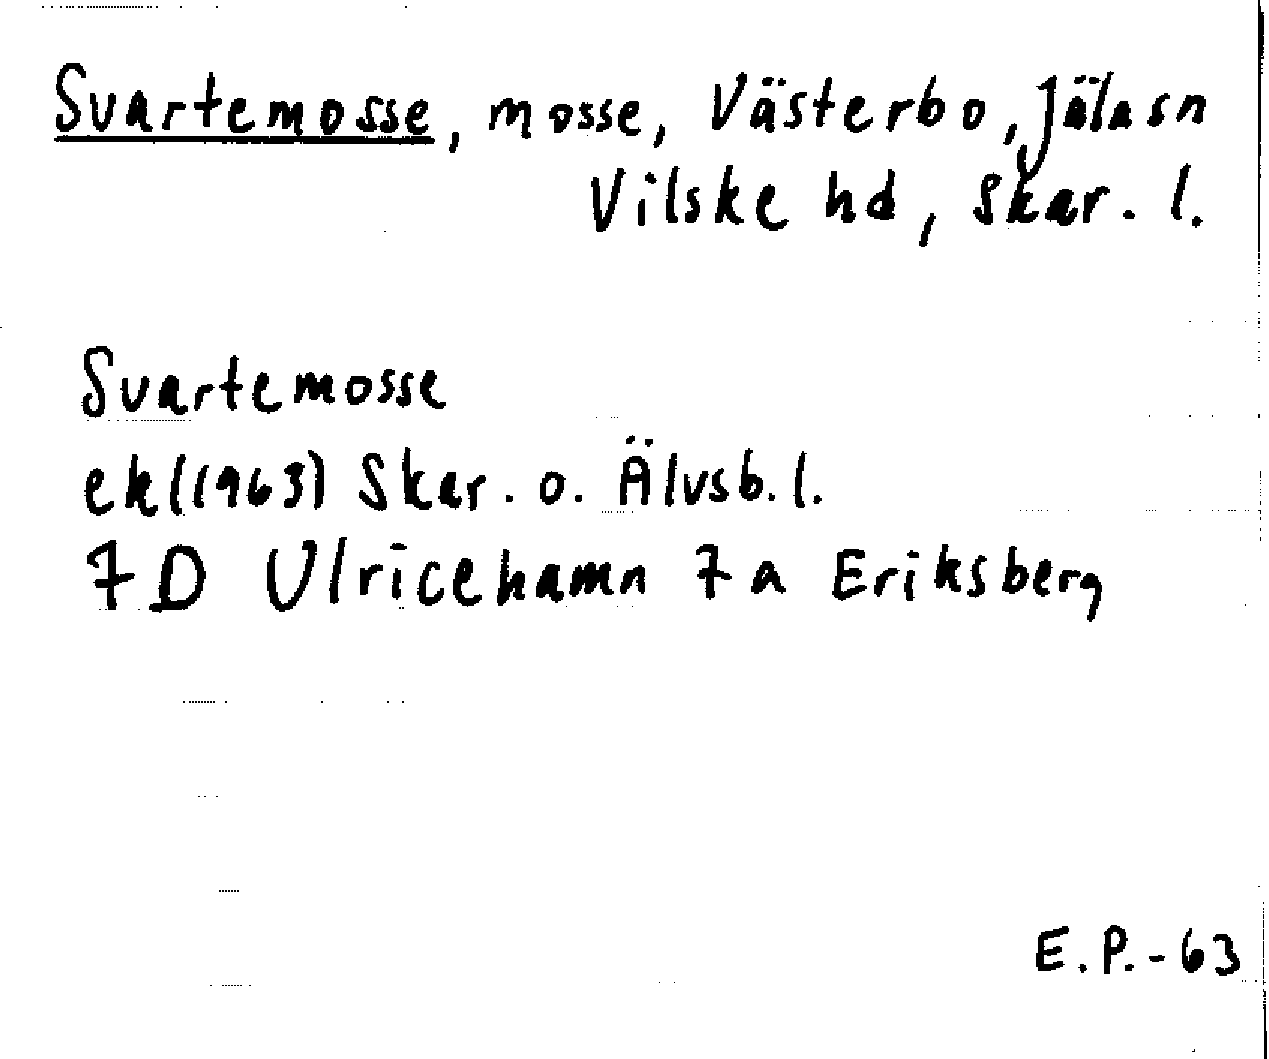 Svartemosse, mosse, Västerbo, Jäla sn
Vilske hd, Skar. l.
Svartemosse
ek(1963) Skar. o. Älvsb. l.
7D Ulricehamn 7a Eriksberg
E.P.-63